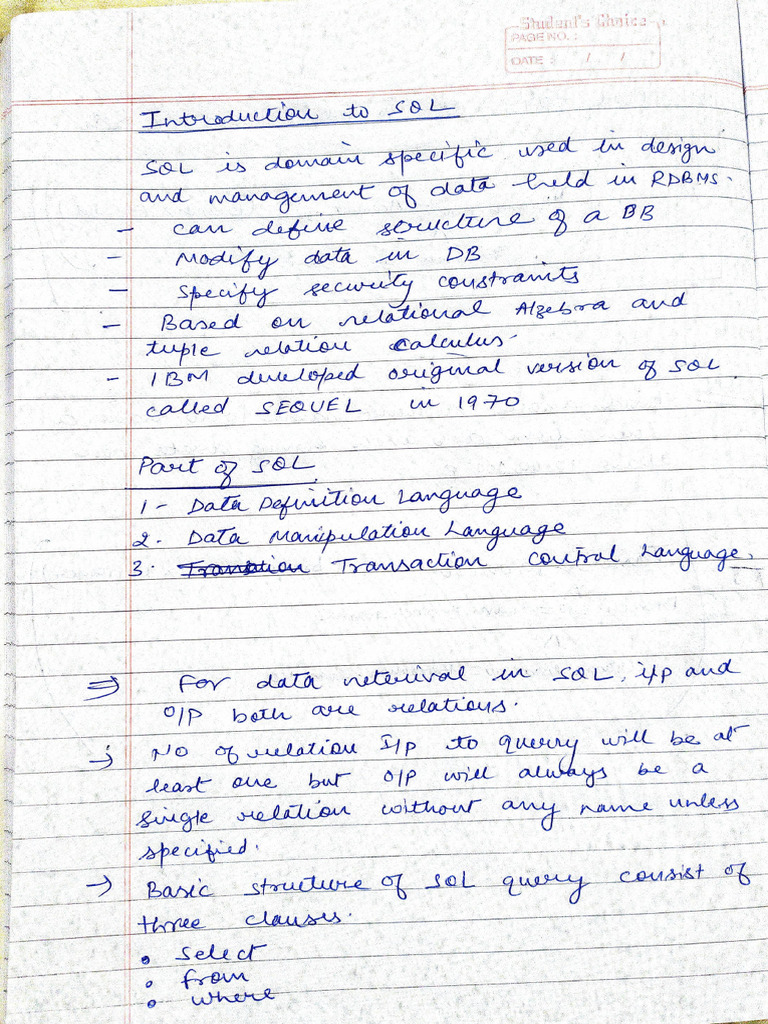 Student's Choice
PAGE NO. :
DATE : / /
Introduction to SQL
SQL is domain specific used in design
and management of data held in RDBMS.
- can define structure of a BB
- Modify data in DB
- Specify security constraints
- Based on relational Algebra and
tuple relation calculus.
- IBM developed original version of SQL
called SEQUEL in 1970
Part of SQL
1 - Data Definition Language
2. Data Manipulation Language
3. Transaction Control Language.
⇒ For data reterival in SQL, i/p and
O/P both are relations.
→ NO of relation I/p to querry will be at
least one but O/P will always be a
single relation without any name unless
specified.
→ Basic structure of SQL query consist of
three clauses.
• Select
• from
• where